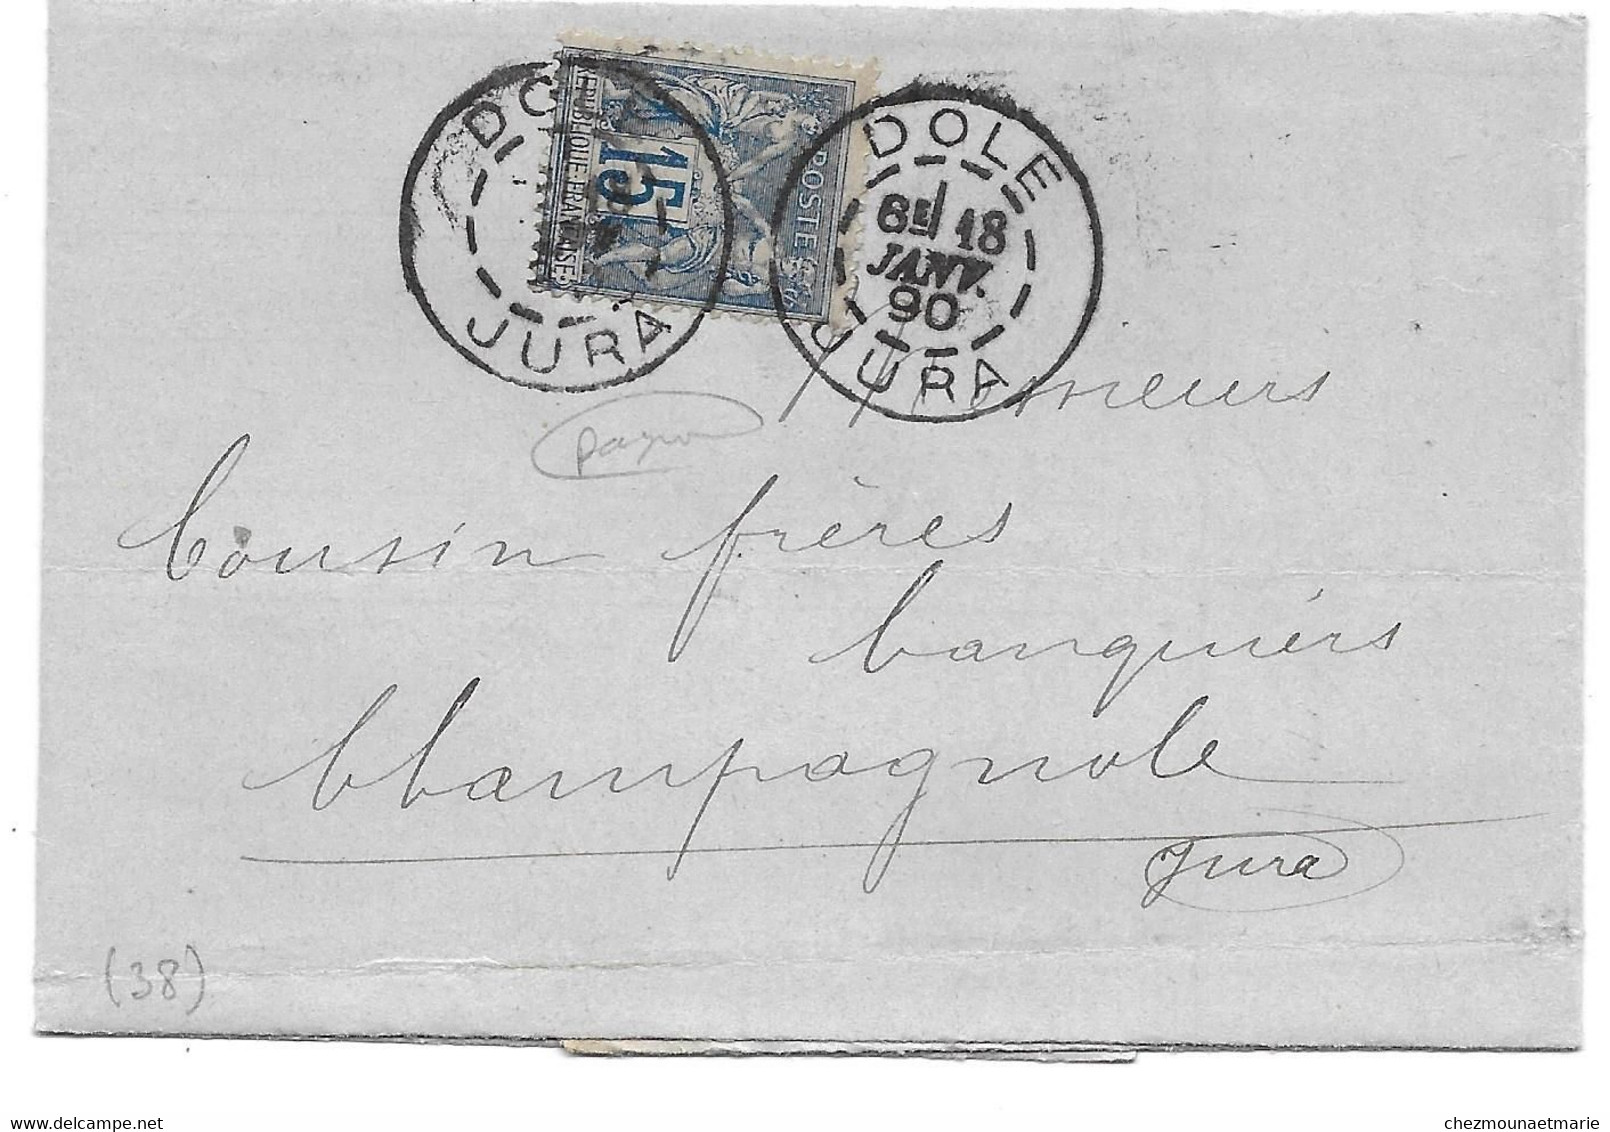 DOLE
JURA
REPUBLIQUE FRANÇAISE
15
POSTES
DOLE
6E/ 18
JANV.
90
JURA
Messieurs
Cousin frères
banquiers
Champagnole
Jura
(38)
www.delcampe.net
chezmounaetmarie